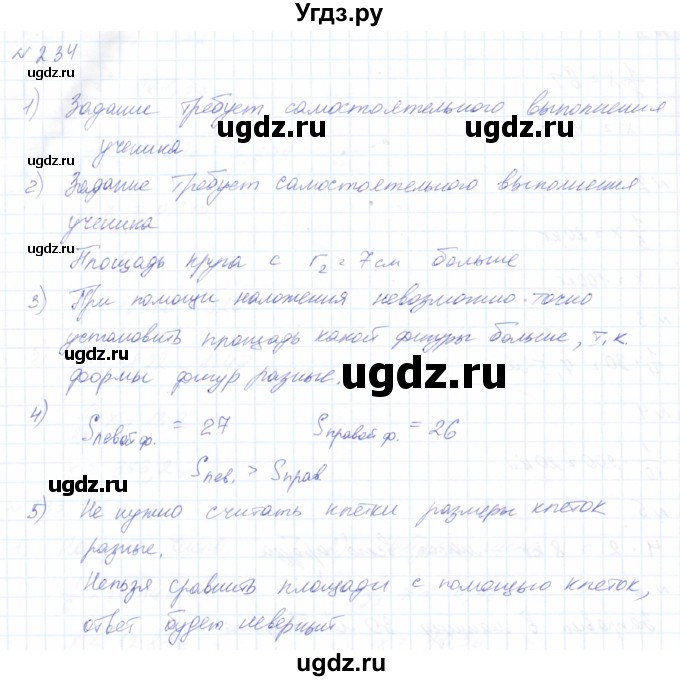 Угдз.ру
№ 234
ugdz.ru
1) Задание требует самостоятельного выполнения
ugdz.ru ugdz.ru
ученика
ugdz.ru
2) Задание требует самостоятельного выполнения
ученика
ugdz.ru
Площадь круга с r₂ = 7 см больше
3) При помощи наложения невозможно точно
ugdz.ru
установить площадь какой фигуры больше, т.к.
формы фигур разные.
ugdz.ru
4) Sлевой ф. = 27 Sправой ф. = 26
ugdz.ru
Sлев. > Sправ
ugdz.ru
5) Не нужно считать клетки размеры клеток
разные.
ugdz.ru
Нельзя сравнить площади с помощью клеток,
ответ будет неверный
ugdz.ru
ugdz.ru